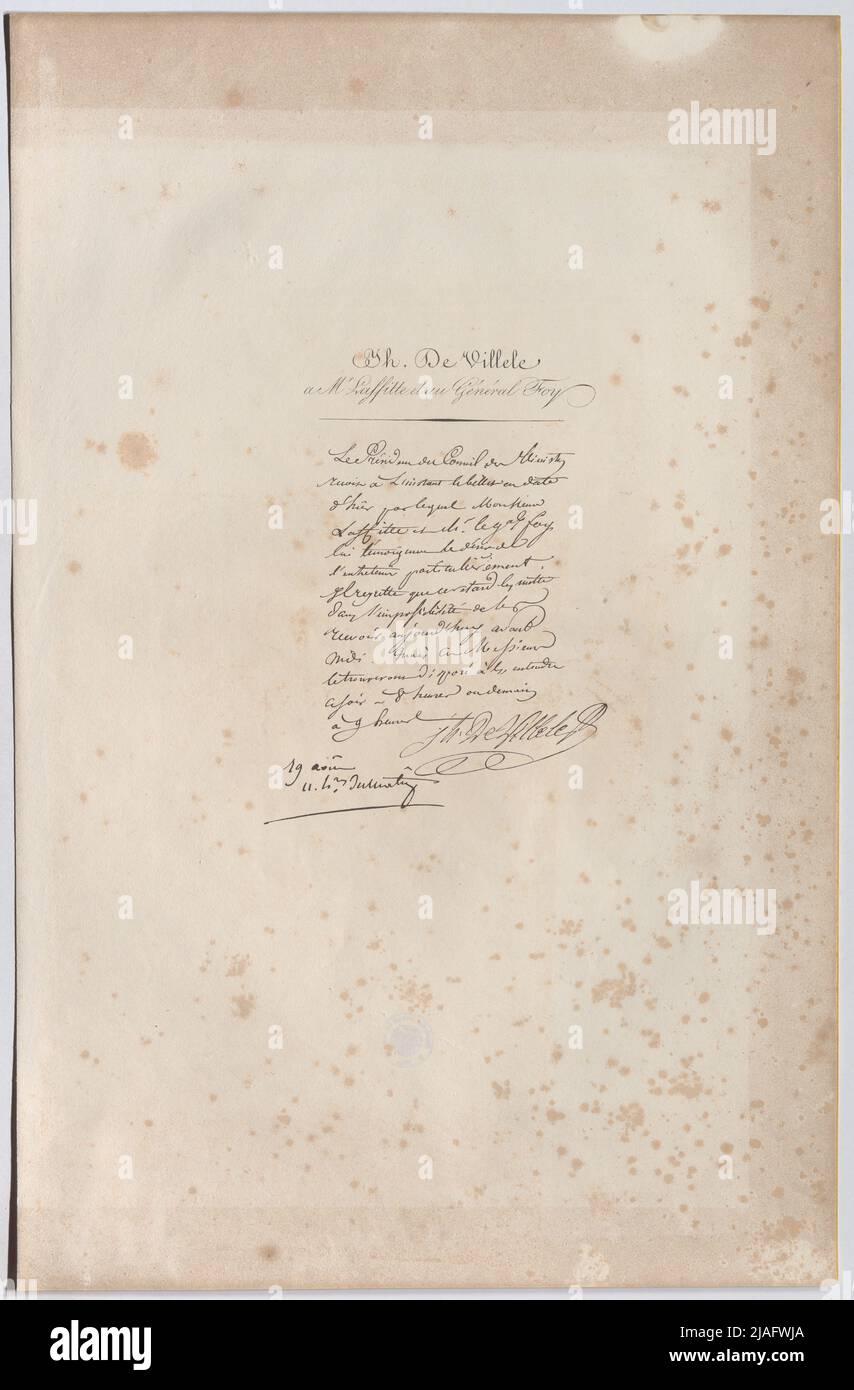 Jh. De Villele
a Mr. Laffitte et au Général Foy
Le Président du Conseil des Ministres
reçoit à l'instant la lettre en date
d'hier par lequel Monsieur
Laffitte et Mr. le gal foy
lui témoignent le désir de
l'entretenir particulièrement.
Il regrette que ce retard les mette
dans l'impossibilité de les
recevoir aujourd'huy avant
midi mais ces Messieurs
le trouveront disposé à les entendre
ce soir à 8 heures ou demain
à 9 heures
Jh. De Villele
19 août
11. hres du matin
alamy
Image ID: 2JAFWJA
www.alamy.com